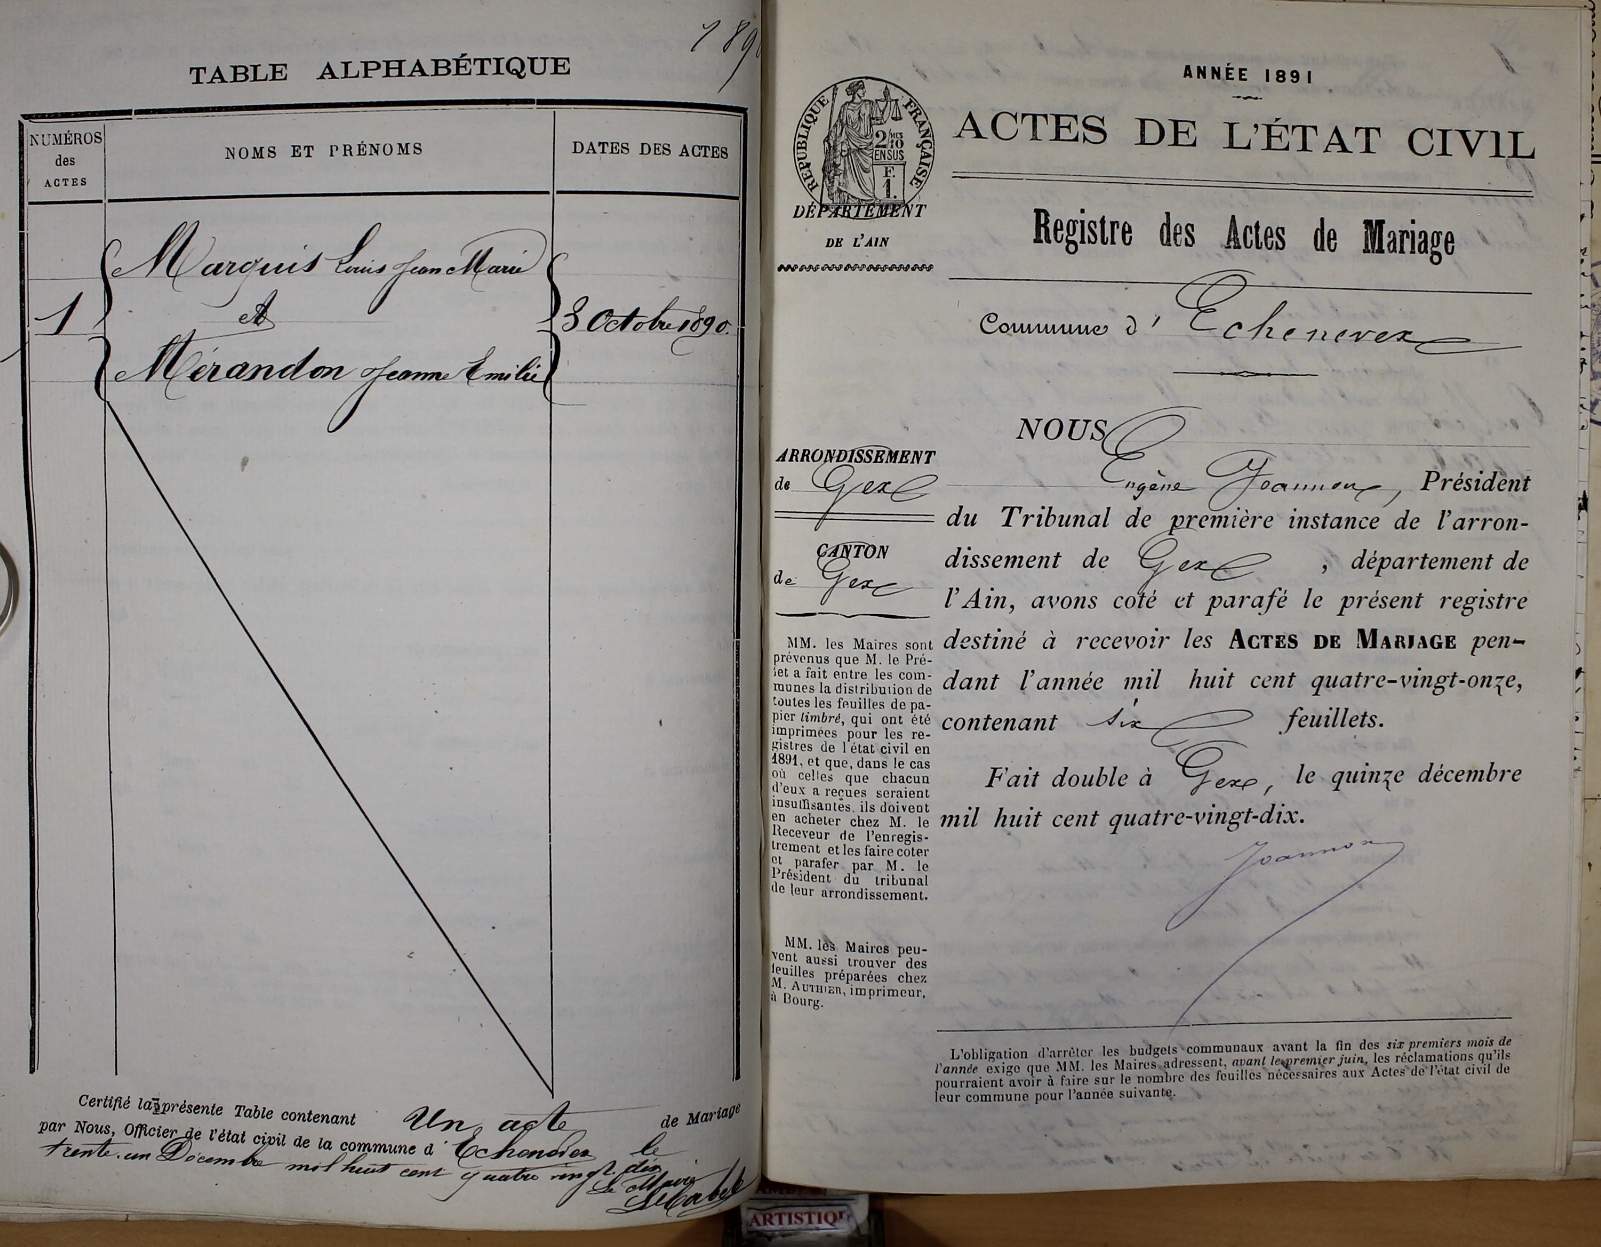 189
TABLE ALPHABÉTIQUE
NUMÉROS
des
ACTES
NOMS ET PRÉNOMS
DATES DES ACTES
Marquis Louis Jean Marie
1
Et
3 Octobre 1890.
Mérandon Jeanne Emilie
Certifié la présente Table contenant Un acte de Mariage
par Nous, Officier de l'état civil de la commune d'Echenevex le
trente-un Décembre mil huit cent quatre vingt dix
Le Maire
ANNÉE 1891
ACTES DE L'ÉTAT CIVIL
RÉPUBLIQUE FRANÇAISE
2/10
EN SUS
F.
1.
DÉPARTEMENT
DE L'AIN
Registre des Actes de Mariage
Commune d'Echenevex
ARRONDISSEMENT
de Gex
CANTON
de Gex
MM. les Maires sont
prévenus que M. le Pré-
fet a fait entre les com-
munes la distribution de
toutes les feuilles de pa-
pier timbré, qui ont été
imprimées pour les re-
gistres de l'état civil en
1891, et que, dans le cas
où celles que chacun
d'eux a reçues seraient
insuffisantes, ils doivent
en acheter chez M. le
Receveur de l'enregis-
trement et les faire coter
et parafer par M. le
Président du tribunal
de leur arrondissement.
MM. les Maires peu-
vent aussi trouver des
feuilles préparées chez
M. AUTHIER, imprimeur,
à Bourg.
NOUS
Eugène Joannon, Président
du Tribunal de première instance de l'arron-
dissement de Gex, département de
l'Ain, avons coté et parafé le présent registre
destiné à recevoir les ACTES DE MARIAGE pen-
dant l'année mil huit cent quatre-vingt-onze,
contenant six feuillets.
Fait double à Gex, le quinze décembre
mil huit cent quatre-vingt-dix.
Joannon
L'obligation d'arrêter les budgets communaux avant la fin des six premiers mois de
l'année exige que MM. les Maires adressent, avant le premier juin, les réclamations qu'ils
pourraient avoir à faire sur le nombre des feuilles nécessaires aux Actes de l'état civil de
leur commune pour l'année suivante.
ARTISTIQ